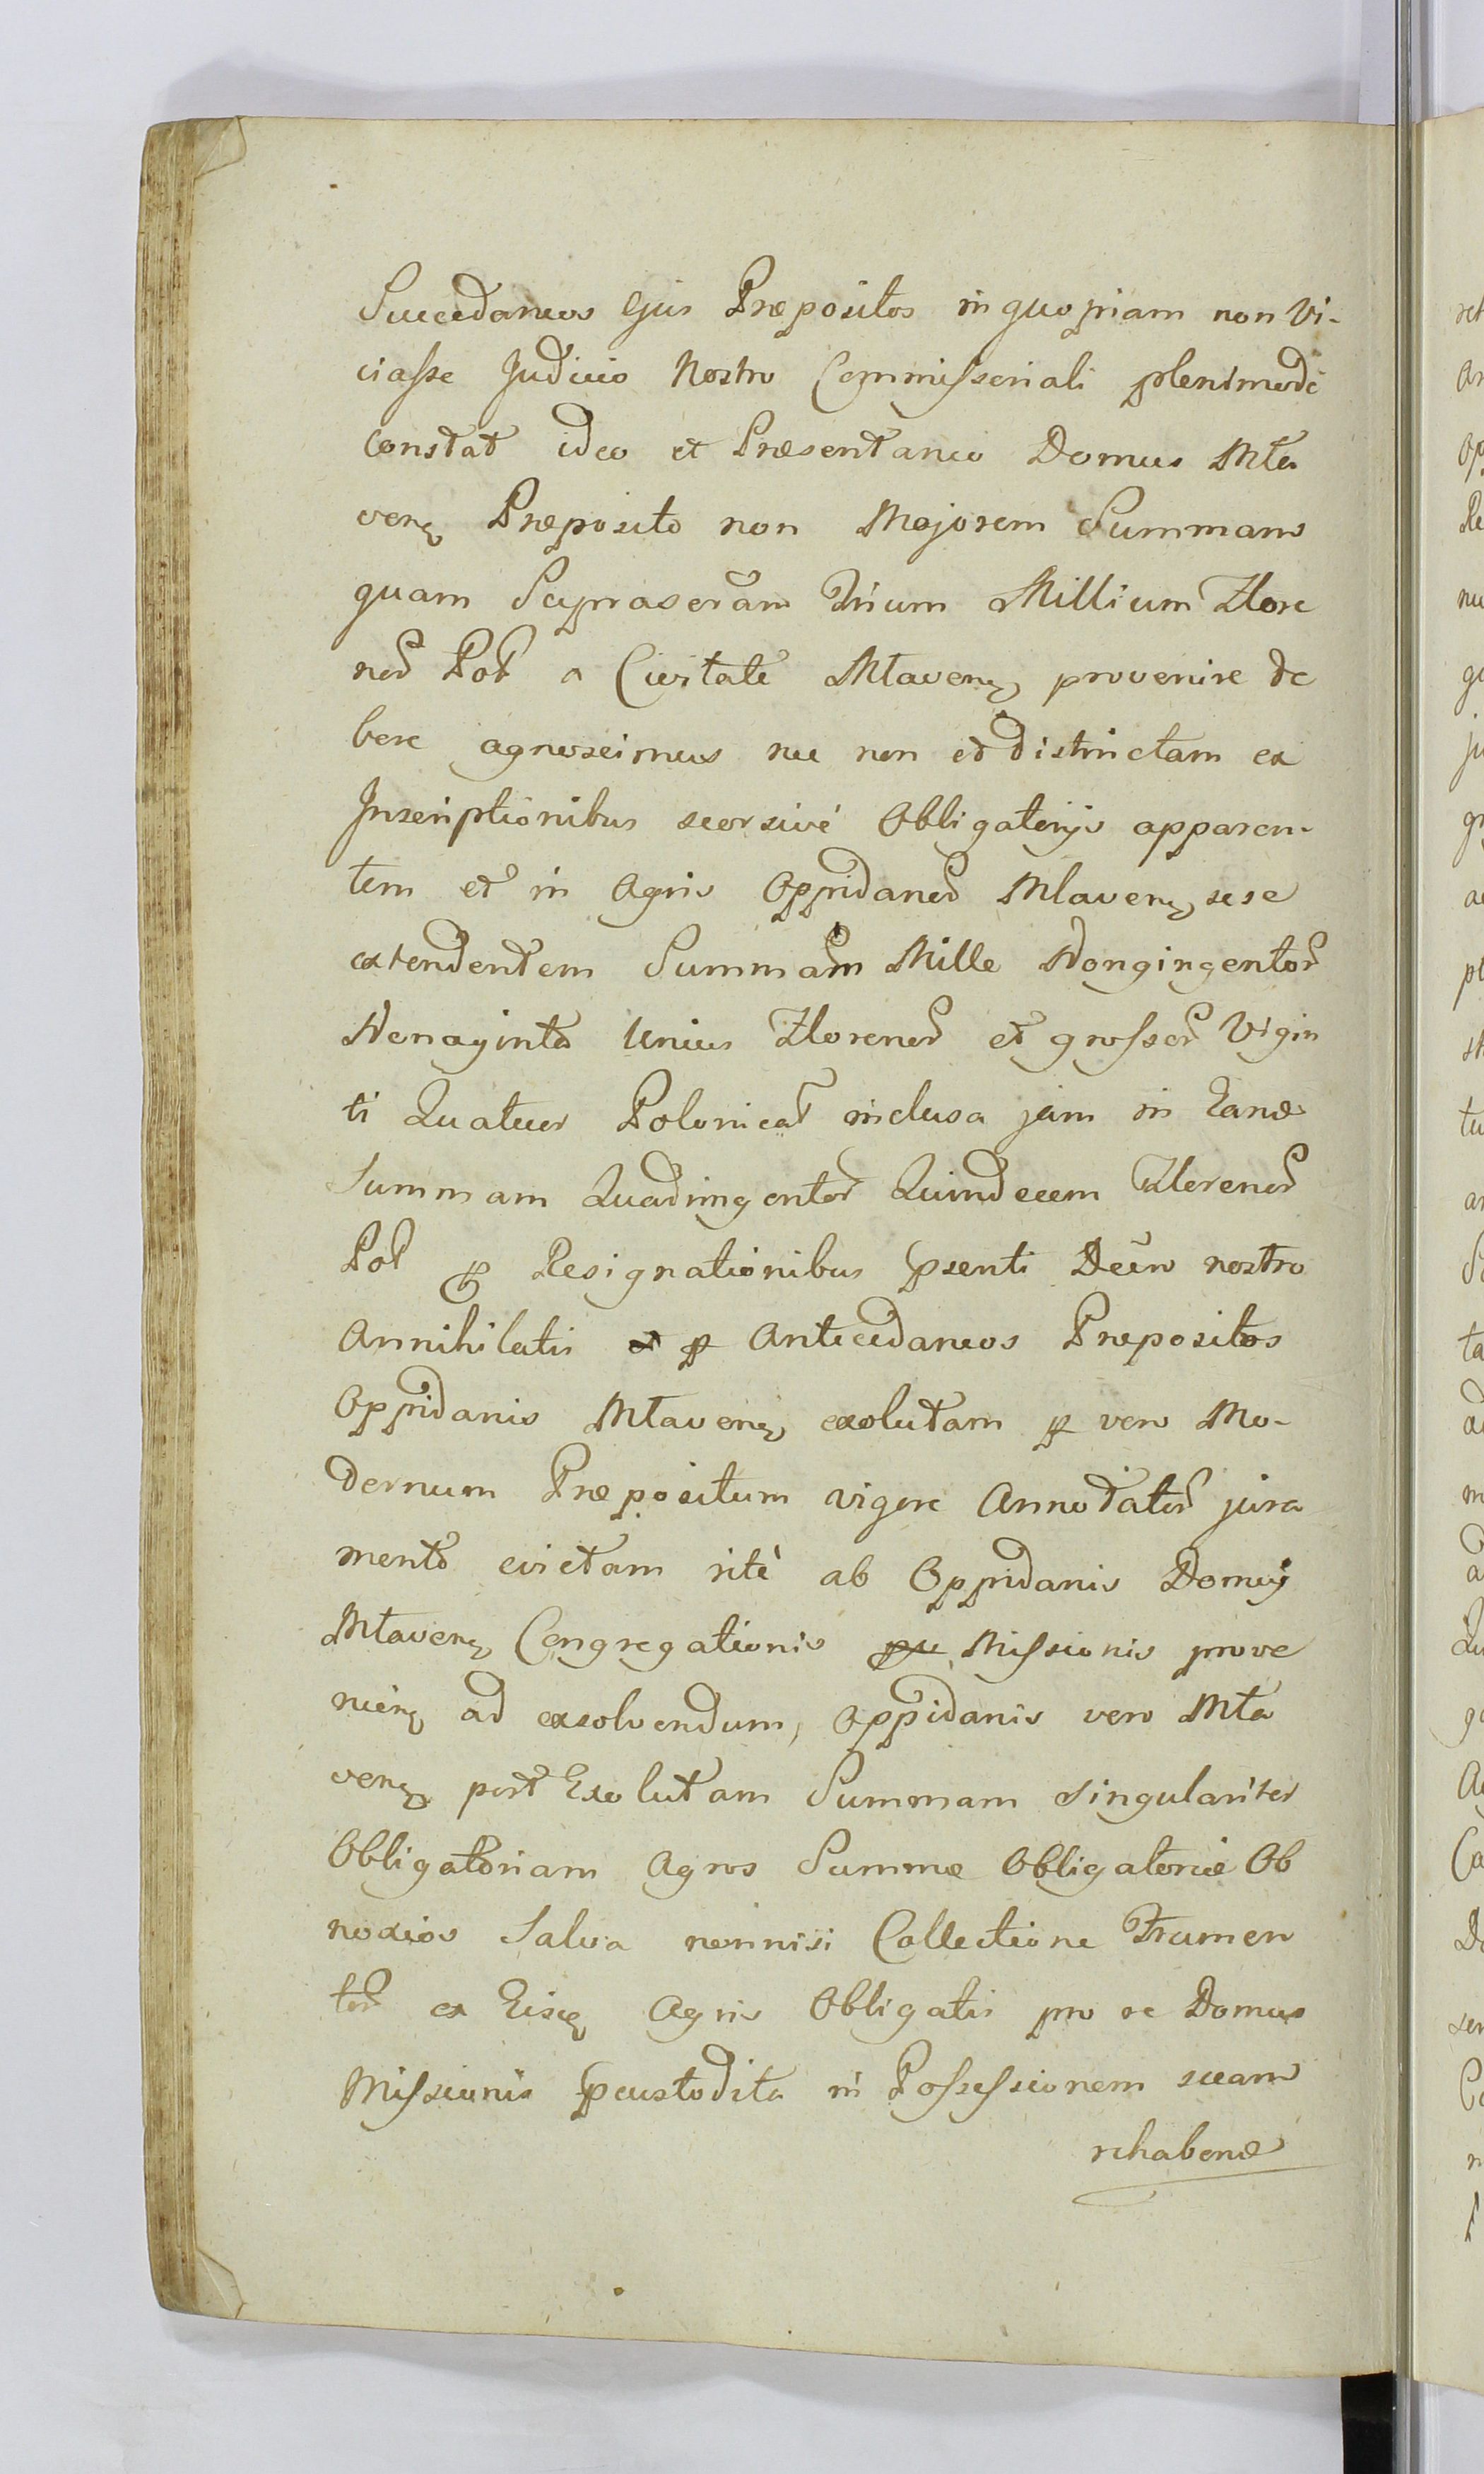 Succedaneos Ejus Præpositos in quopiam non Vi-
ciasse Judicio Nostro Commissoriali plenimode
constat ideo et Præsentaneo Domus Mła
ven Præposito non Majorem Summam
quam Suprascram Trium Millium Flore
nor Pol a Civitate Młaven provenire de
bere agnoscimus nec non et districtam ex
Inscriptionibus seorsivè Obligatorijs apparen-
tem et in Agris Oppidaneor Mlaven sese
extendentem Summam Mille Nongingentor
Nonaginta Unius Florenor et grossor Vigin
ti Quatuor Polonical inclusa jam in Eand
Summam Quadringentor Quindecem Florenor
Pol p Resignationibus psenti Decro nostro
Annihilatis et p Antecedaneos Præpositos
Oppidanis Młaven exolutam p vero Mo-
dernum Præpositum vigore Annotator jura
mento evictam ritè ab Oppidanis Domui
Mławen Congregationis Missionis prove
nien ad exsolvendum, Oppidanis vero Mła
ven post Exolutam Summam singulariter
Obligatoriam Agros Summæ Obligatoriæ Ob
noxios Salva nonnisi Collectione Frumen
tor ex Eisq Agris Obligatis pro re Domus
Missionis pcustodita in Possessionem suam
rehabend